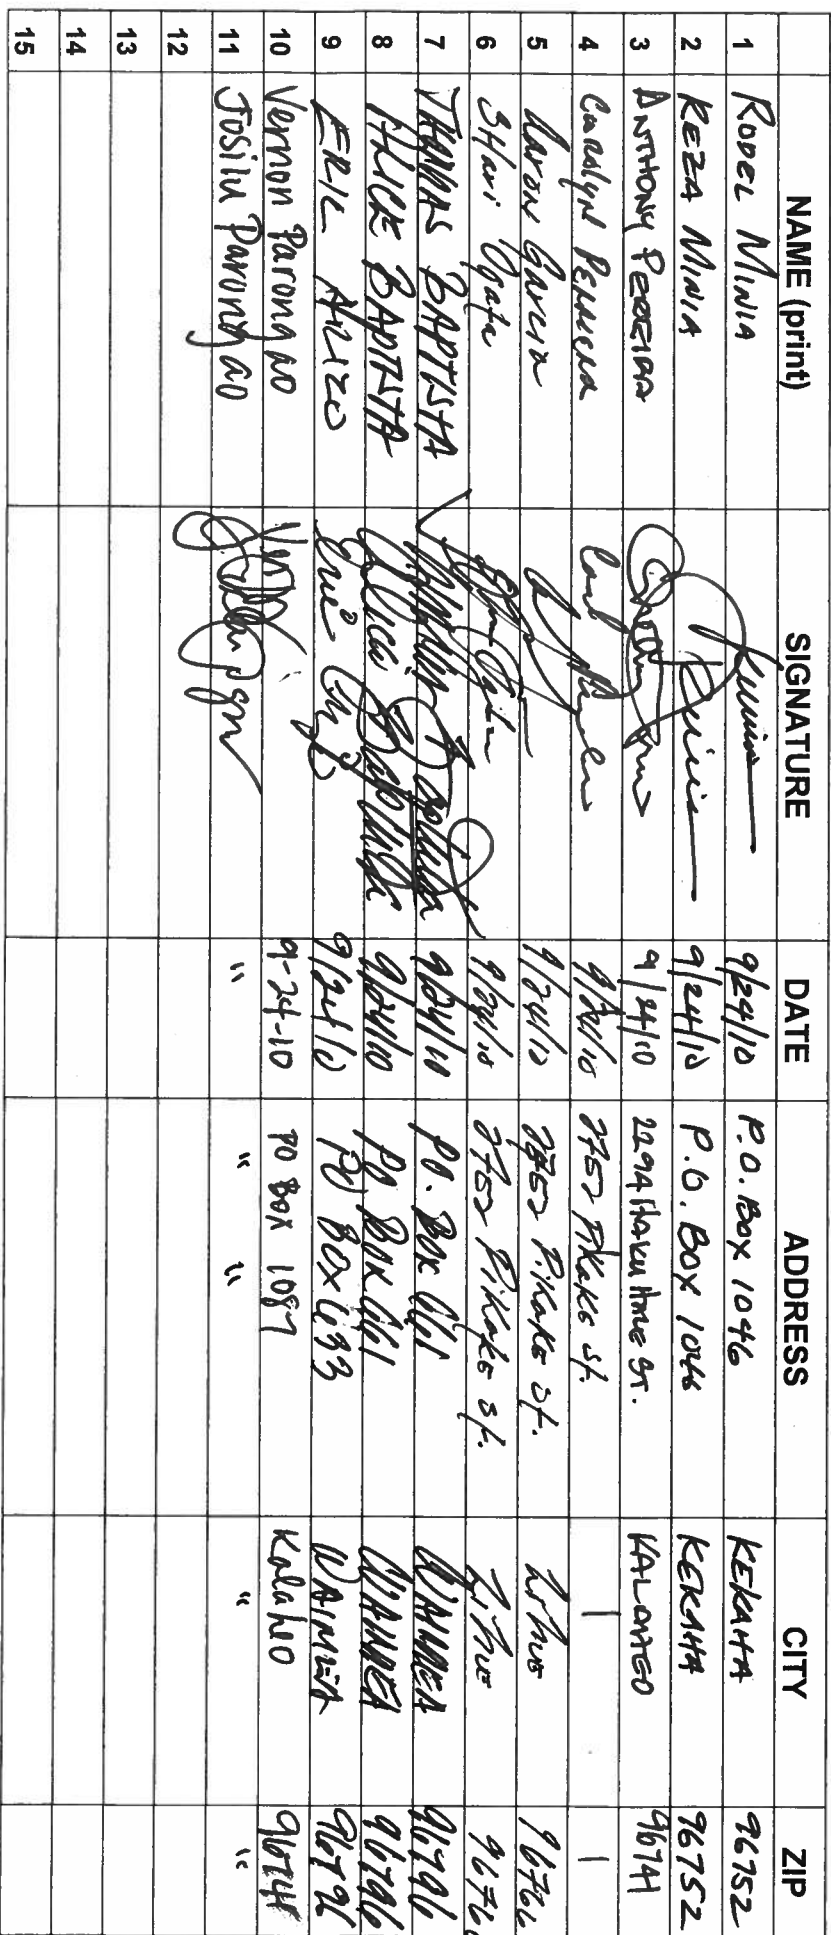 NAME (print) SIGNATURE DATE ADDRESS CITY ZIP
1 RODEL MINIA 9/24/10 P.O. BOX 1046 KEKAHA 96752
2 KEZA MINIA 9/24/10 P.O. BOX 1046 KEKAHA 96752
3 ANTHONY PEREIRA 9/24/10 2294 ST. 96741
4 Carolyn 9/24/10 2752 PiKaKe St. —
5 Aaron Garcia 9/24/10 2752 PiKaKe St. Lihue 96766
6 Shari Ogata 9/24/10 2752 PiKaKe St. Lihue 9676
7 BAPTISTA 9/24/10 P.O. BOX 661 WAIMEA 96796
8 ALICE BAPTISTA Alice Baptista 9/24/10 PO BOX 661 WAIMEA 96796
9 ERIC Eric 9/24/10 PO BOX 633 WAIMEA 96796
10 Vernon Parongao 9-24-10 PO BOX 1087 Kalaheo 96741
11 Josilu Parongao " " " " "
12
13
14
15